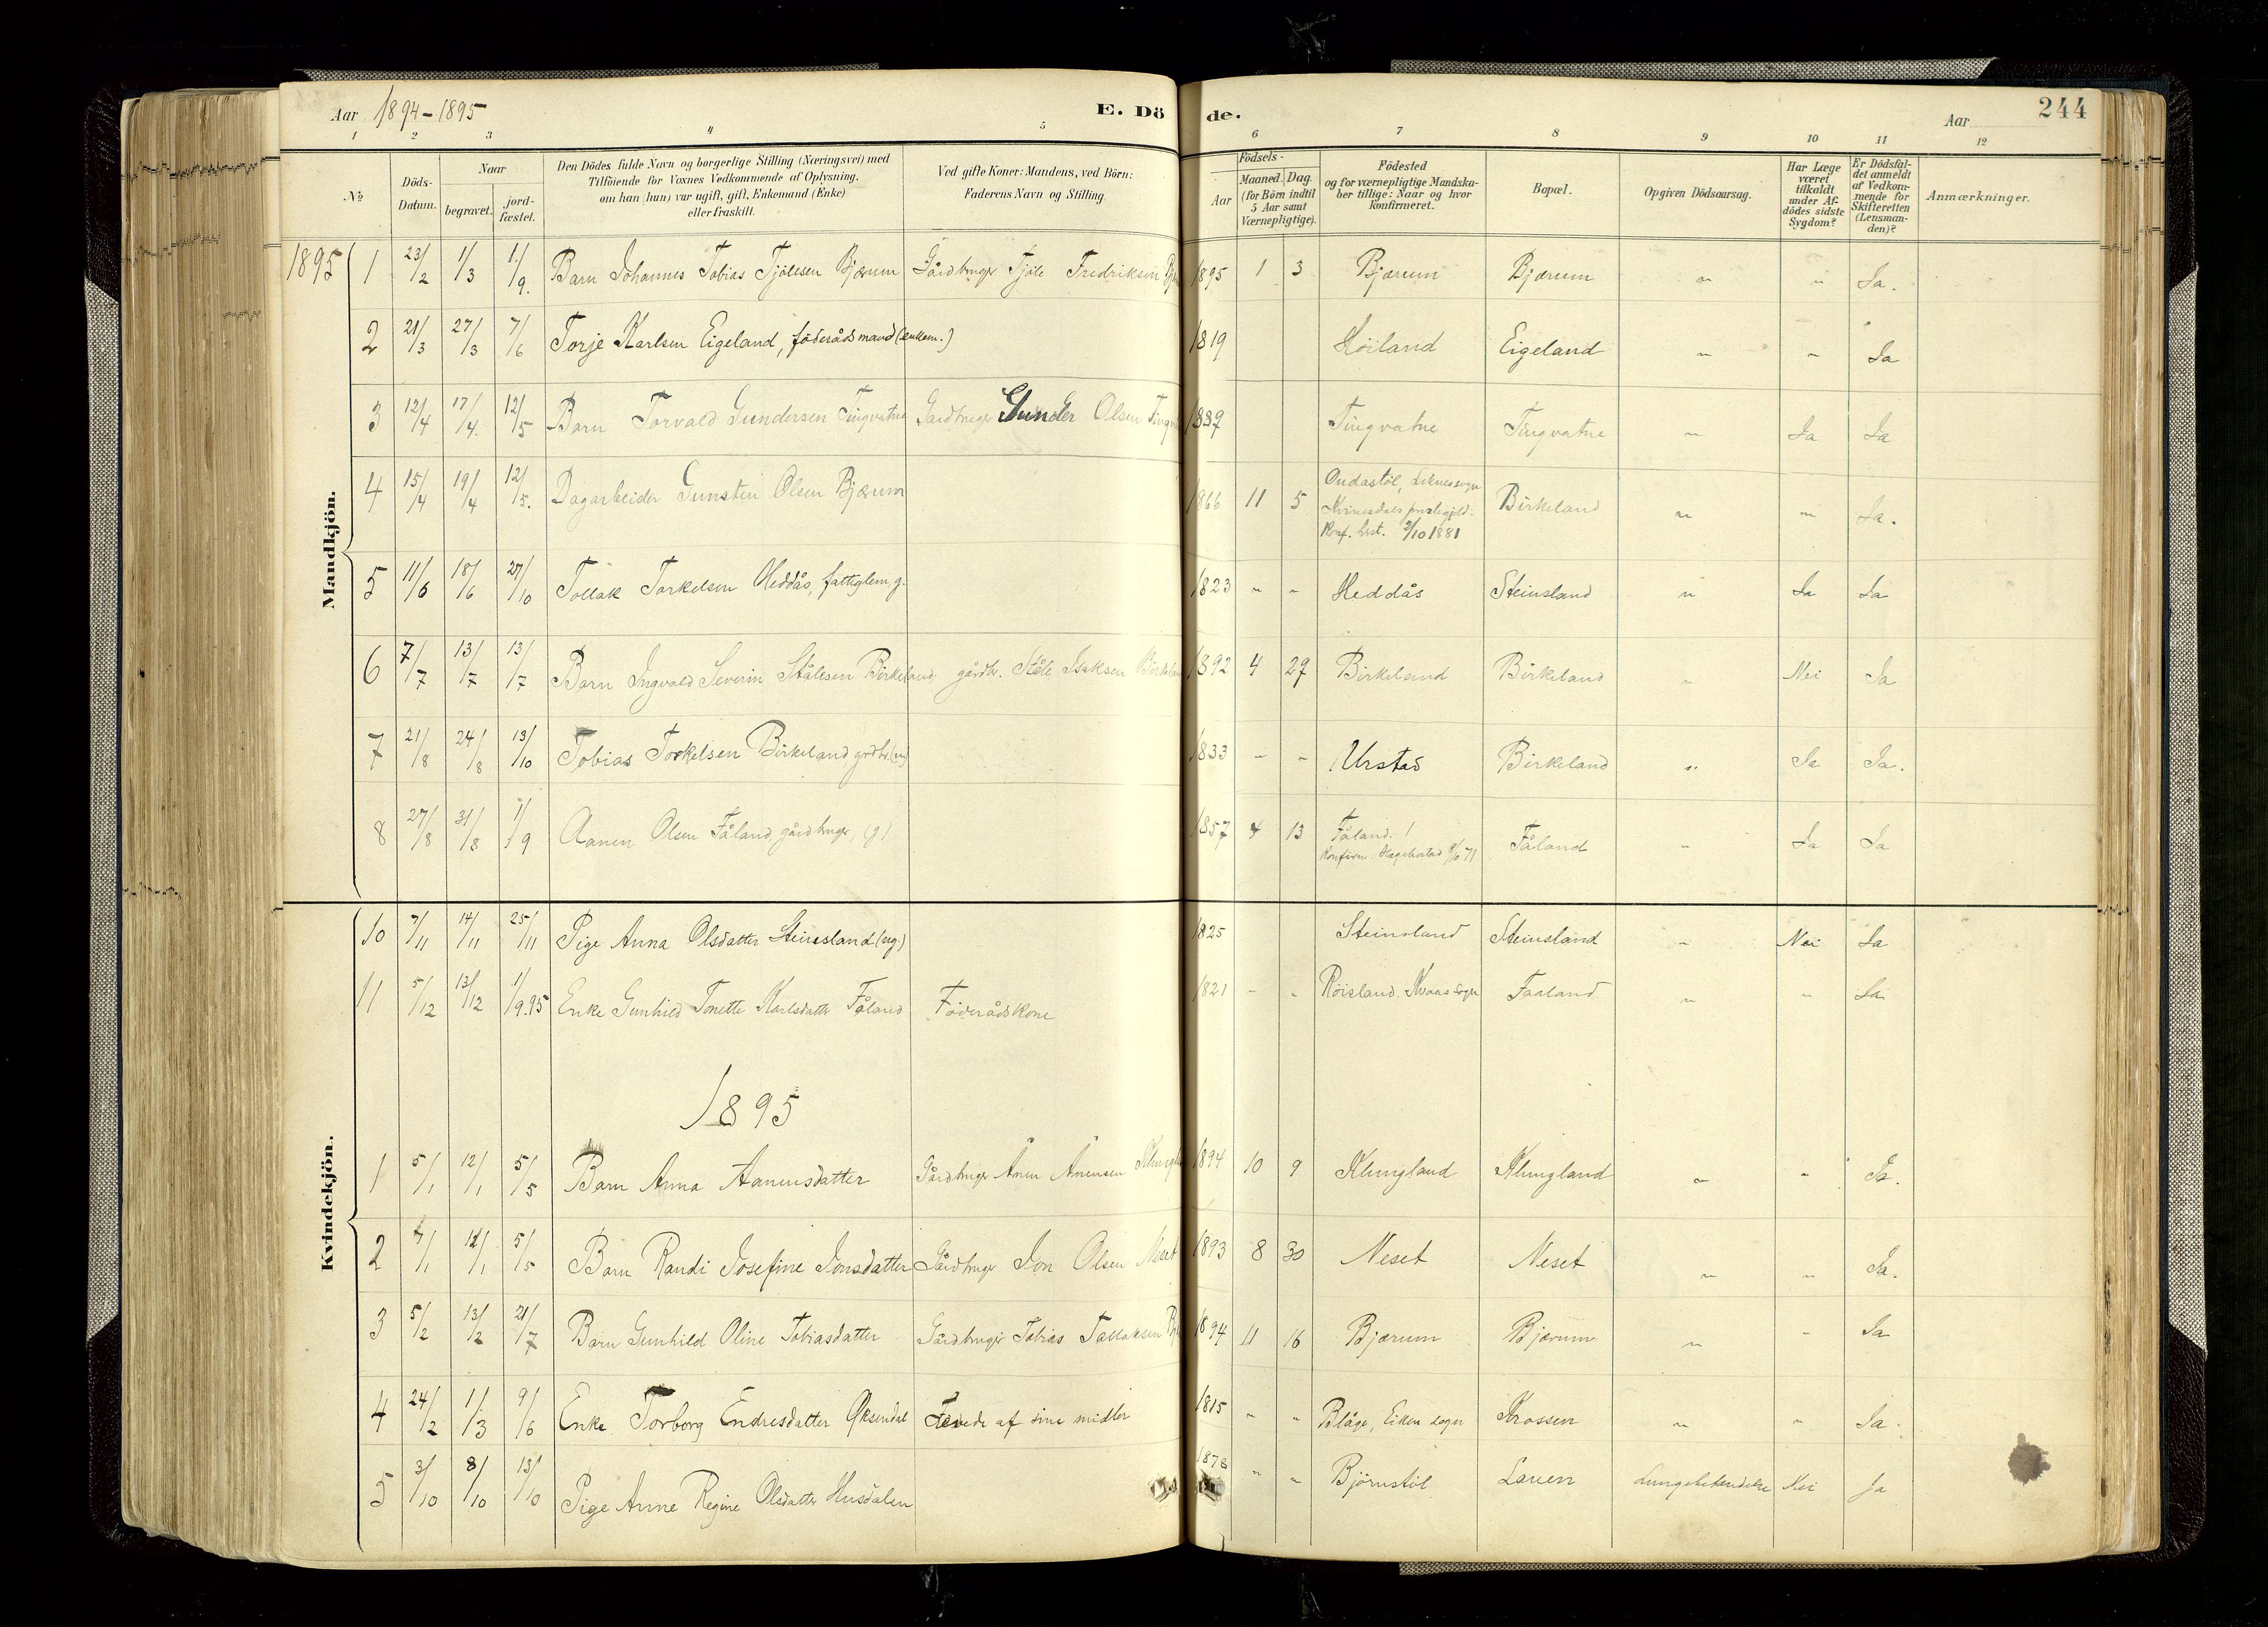 Aar 1894-1895
E. Dö de.
Aar
244
1 2 3 4 5 6 7 8 9 10 11 12
№
Döds-Datum.
Naar
begravet.
jord-fæstet.
Den Dödes fulde Navn og borgerlige Stilling (Næringsvei) med
Tilföiende for Voxnes Vedkommende af Oplysning,
om han (hun) var ugift, gift, Enkemand (Enke)
eller fraskilt.
Ved gifte Koner: Mandens, ved Börn:
Faderens Navn og Stilling
Födsels-
Aar
Maaned. Dag.
(for Börn indtil
5 Aar samt
Værnepligtige).
Födested
og for værnepligtige Mandska-
ber tillige: Naar og hvor
konfirmeret.
Bopæl.
Opgiven Dödsaarsag.
Har Læge
været
tilkaldt
under Af-
dödes sidste
Sygdom?
Er Dödsfal-
det anmeldt
af Vedkom-
mende for
Skifteretten
(Lensman-
den)?
Anmærkninger.
Mandkjön.
1895
1 23/2 1/3 1/9. Barn Johannes Tobias Tjölesen Bjærum Gårdbruger Tjöle Fredriksen 1895 1 3 Bjærum Bjærum " " Ja.
2 21/3 27/3 7/6 Torje Karlsen Eigeland, föderådsmand (enkem.) 1819 Höiland Eigeland " " Ja
3 12/4 17/4. 12/5 Barn Torvald Gundersen Tingvatne Gardbruger Gunder Olsen 1889 Tingvatne Tingvatne " Ja Ja
4 15/4 19/4 12/5. Dagarbeider Gunsten Olsen Bjærum 1866 11 5 Birkeland " " Ja.
Kvinesdals
Konf. 2/10 1881
5 11/6 18/6 27/10 Tollak Torkelsen Heddås, fattiglem, g. 1823 " " Heddås Steinsland " Ja Ja
6 7/7 13/7 13/7 Barn Ingvald Severin Stålesen Birkeland, gårdbr. Ståle Isaksen Birkeland 1892 4 27 Birkeland Birkeland " Nei Ja
7 21/8 24/8 13/10 Tobias Torkelsen Birkeland grdbr. 1833 - " Urstad Birkeland " Ja Ja.
8 27/8 31/8 1/9 Aanen Olsen Fåland, gårdbruger, (g) 1857 4 13 Fåland. Fåland " Ja Ja
Konfirm. Hægebostad 8/10 71
Kvindekjön.
10 7/11 14/11 25/11 Pige Anna Olsdatter Steinsland (ug.) 1825 Steinsland Steinsland " Nei Ja
11 5/12 13/12 1/9.95 Enke Gunhild Tonette Karlsdatter Fåland Föderådskone 1821 - " Röisland. Kvaas sogn Faaland " " Ja
1895
1 5/1 12/1 5/5 Barn Anna Aanensdatter Gårdbruger Ånen Ånensen 1894 10 9 Klungland Klungland " " Ja.
2 4/1 12/1 5/5 Barn Randi Josefine Jonsdatter Gårdbruger Jon Olsen Neset 1893 8 30 Neset Neset " " Ja.
3 5/2 13/2 21/7 Barn Gunhild Oline Tobiasdatter Gårdbruger Tobias Tallaksen 1894 11 16 Bjærum Bjærum " " Ja
4 24/2 1/3 9/6 Enke Torborg Endresdatter Öksendal Levede af sine midler 1815 " " Eiken sogn Krossen " " Ja.
5 3/10 8/10 13/10 Pige Anne Regine Olsdatter Husdalen 1878 " " Björnstöl Lauen Lungebetændelse Nei Ja